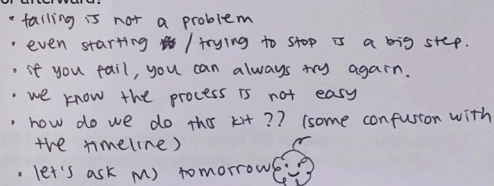 or afterward?
• failing is not a problem
• even starting / trying to stop is a big step.
• if you fail, you can always try again.
• we know the process is not easy
• how do we do this kit ?? (some confusion with
the timeline)
• let's ask MJ tomorrow